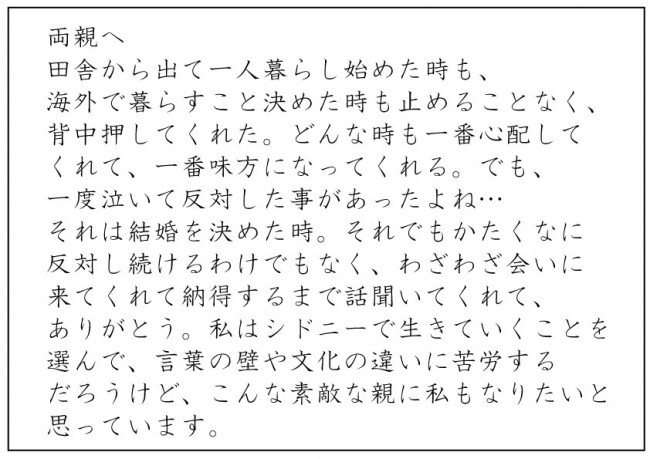 両親へ
田舎から出て一人暮らし始めた時も、
海外で暮らすこと決めた時も止めることなく、
背中押してくれた。どんな時も一番心配して
くれて、一番味方になってくれる。でも、
一度泣いて反対した事があったよね…
それは結婚を決めた時。それでもかたくなに
反対し続けるわけでもなく、わざわざ会いに
来てくれて納得するまで話聞いてくれて、
ありがとう。私はシドニーで生きていくことを
選んで、言葉の壁や文化の違いに苦労する
だろうけど、こんな素敵な親に私もなりたいと
思っています。